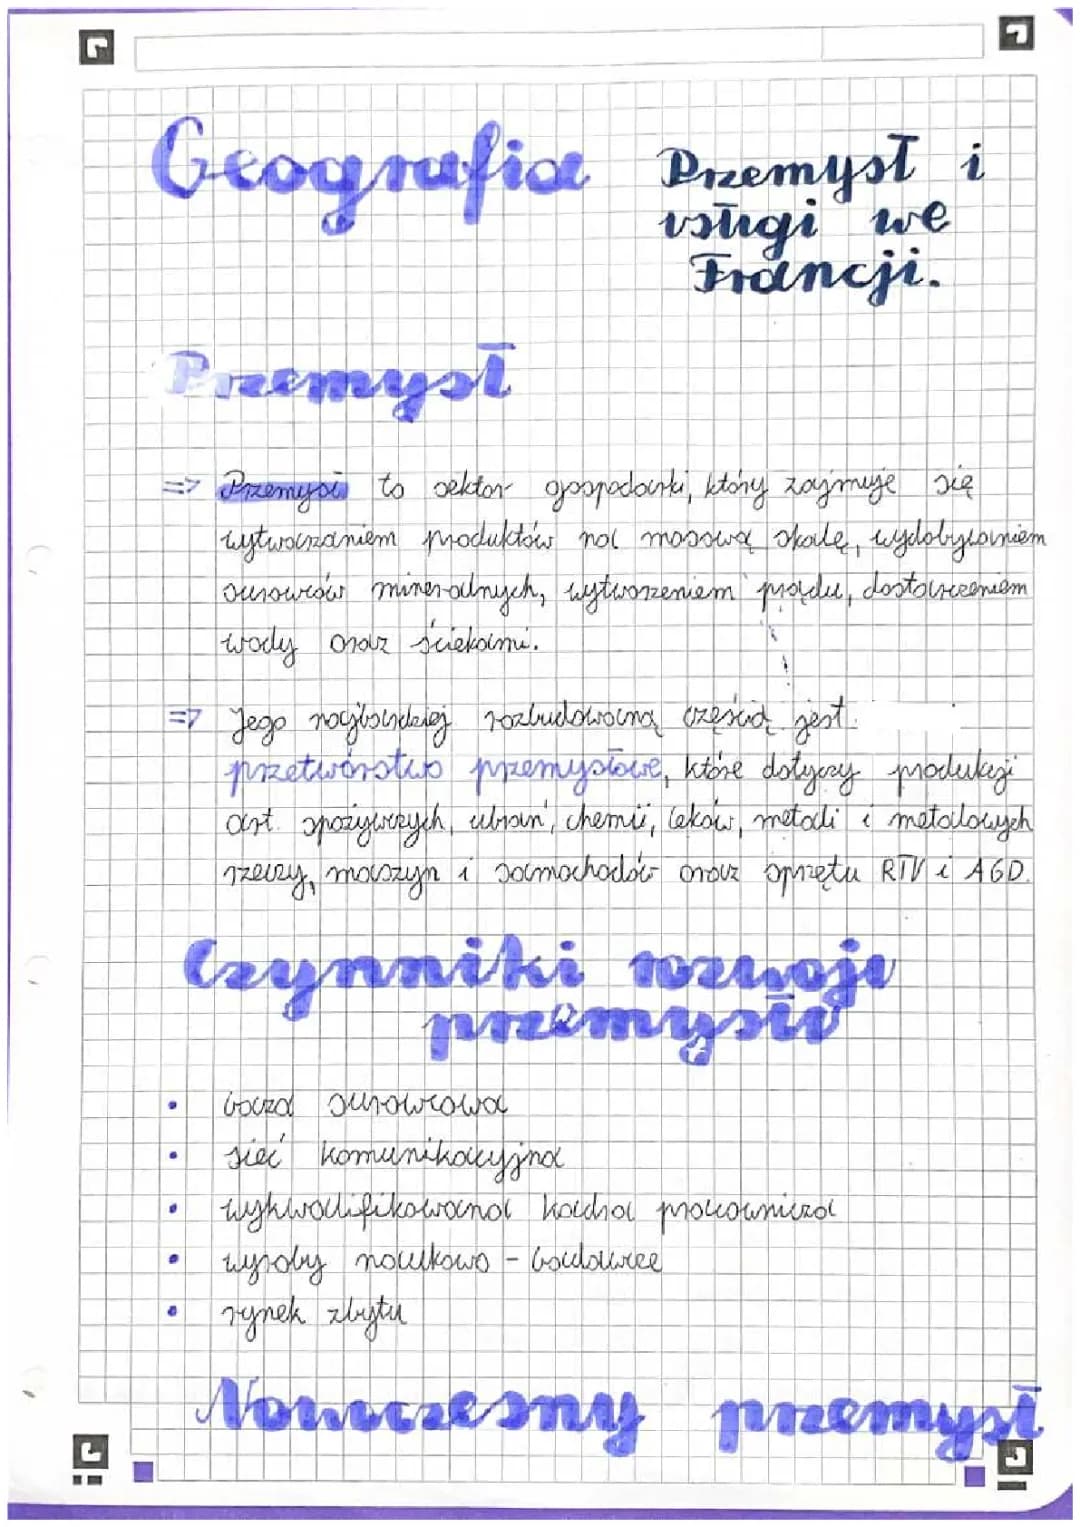 Geografia
Przemysł i
usługi we
Francji.
Przemysł
=> Przemysł to sektor gospodarki, który zajmuje się
wytwarzaniem produktów na masową skalę, wydobywaniem
surowców mineralnych, wytworzeniem prądu, dostarczeniem
wody oraz ściekami.
=> Jego najbardziej rozbudowaną częścią jest
przetwórstwo przemysłowe, które dotyczy produkcji
art. spożywczych, ubrań, chemii, leków, metali i metalowych
rzeczy, maszyn i samochodów oraz sprzętu RTV i AGD.
Czynniki rozwoju
przemysłu
• baza surowcowa
• sieć komunikacyjna
• wykwalifikowana kadra pracownicza
• wyroby naukowo - badawcze
• rynek zbytu
Nowoczesny przemysł